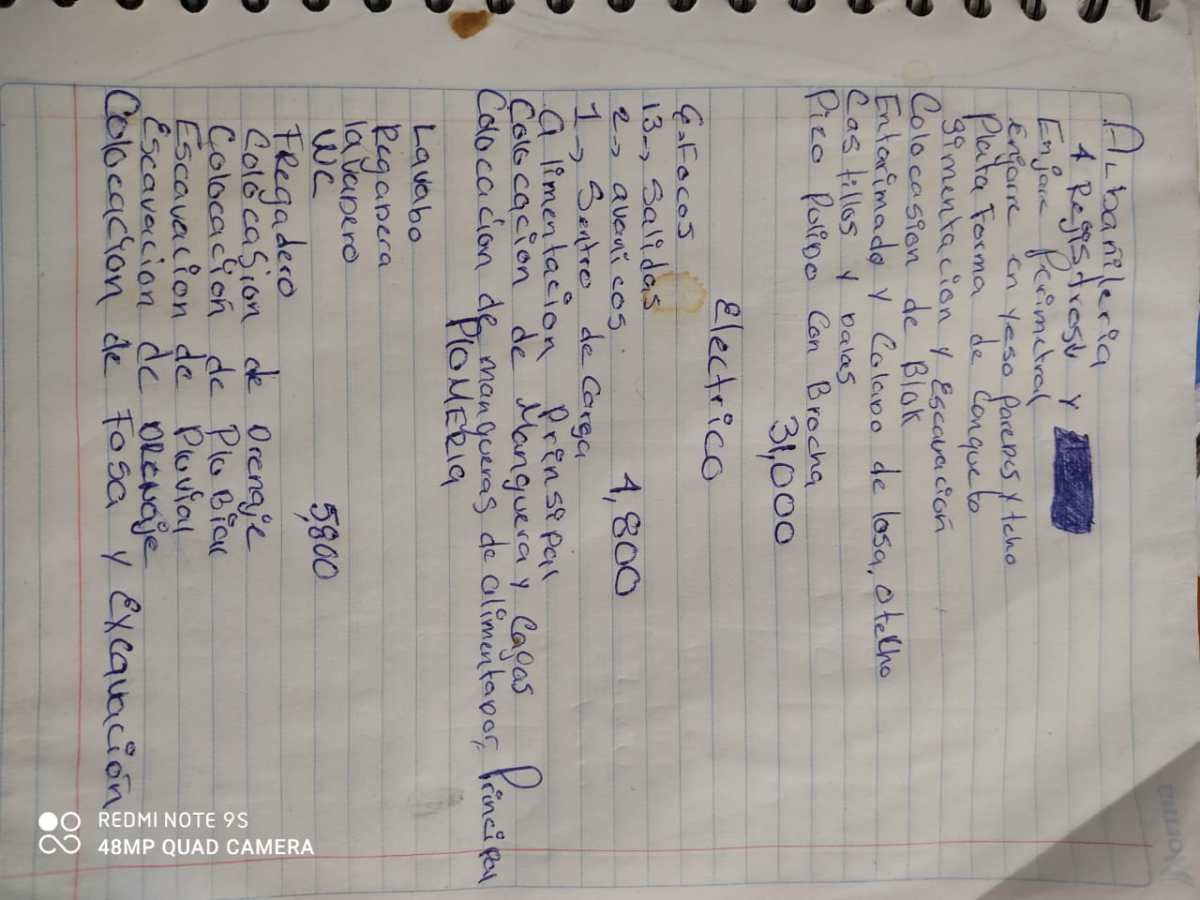 Albañileria
4 Registros y
Enjare Perimetral
enjarre en yeso paredes y tcho
Plata Forma de Conquebo
gimentacion y Escavación
Colocasion de Blok
Entarimado y Colado de losa, o telho
Castillos y Dalas
Pizo Polido Con Brocha
31,000
Electrico
G=Focos
13→ Salidas
2→ avanicos
4,800
1→ Sentro de Carga
alimentacion Prinsipal
Colocación de Manguera y Cagas
Colocacion de mangueras de alimentador, Principal
PlOMERIA
Lavabo
Regadera
lavadero
WC
5,800
FRegadero
Colocasion de Drenaje
Colocación de PluBial
Escavacion de Pluvial
Escavacion de DRENaje
Colocación de Fosa y Excavación
REDMI NOTE 9S
48MP QUAD CAMERA
Norma